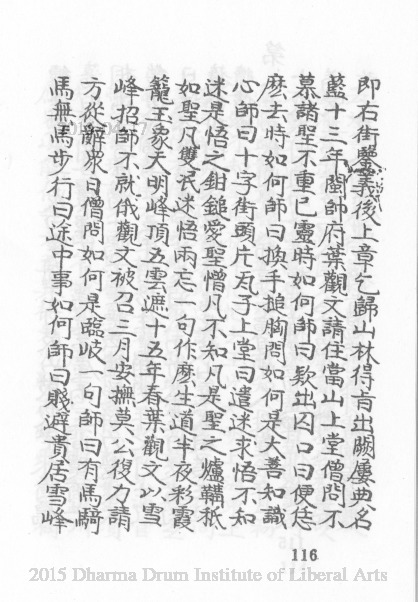 即右街鑒義後上章乞歸山林得旨出闕屢典名
藍十三年閩帥府葉觀文請住當山上堂僧問不
慕諸聖不重已靈時如何師曰欵出囚口曰便恁
麽去時如何師曰換手搥胸問如何是大善知識
心師曰十字街頭片瓦子上堂曰遣迷求悟不知
迷是悟之鉗鎚愛聖憎凡不知凡是聖之爐鞴秖
如聖凡雙泯迷悟兩忘一句作麽生道半夜彩霞
籠玉象天明峰頂五雲遮十五年春葉觀文以雪
峰招師不就俄觀文被召三月安撫莫公復力請
方從辭衆日僧問如何是臨岐一句師曰有馬騎
馬無馬步行曰途中事如何師曰賤避貴居雪峰
116
2015 Dharma Drum Institute of Liberal Arts